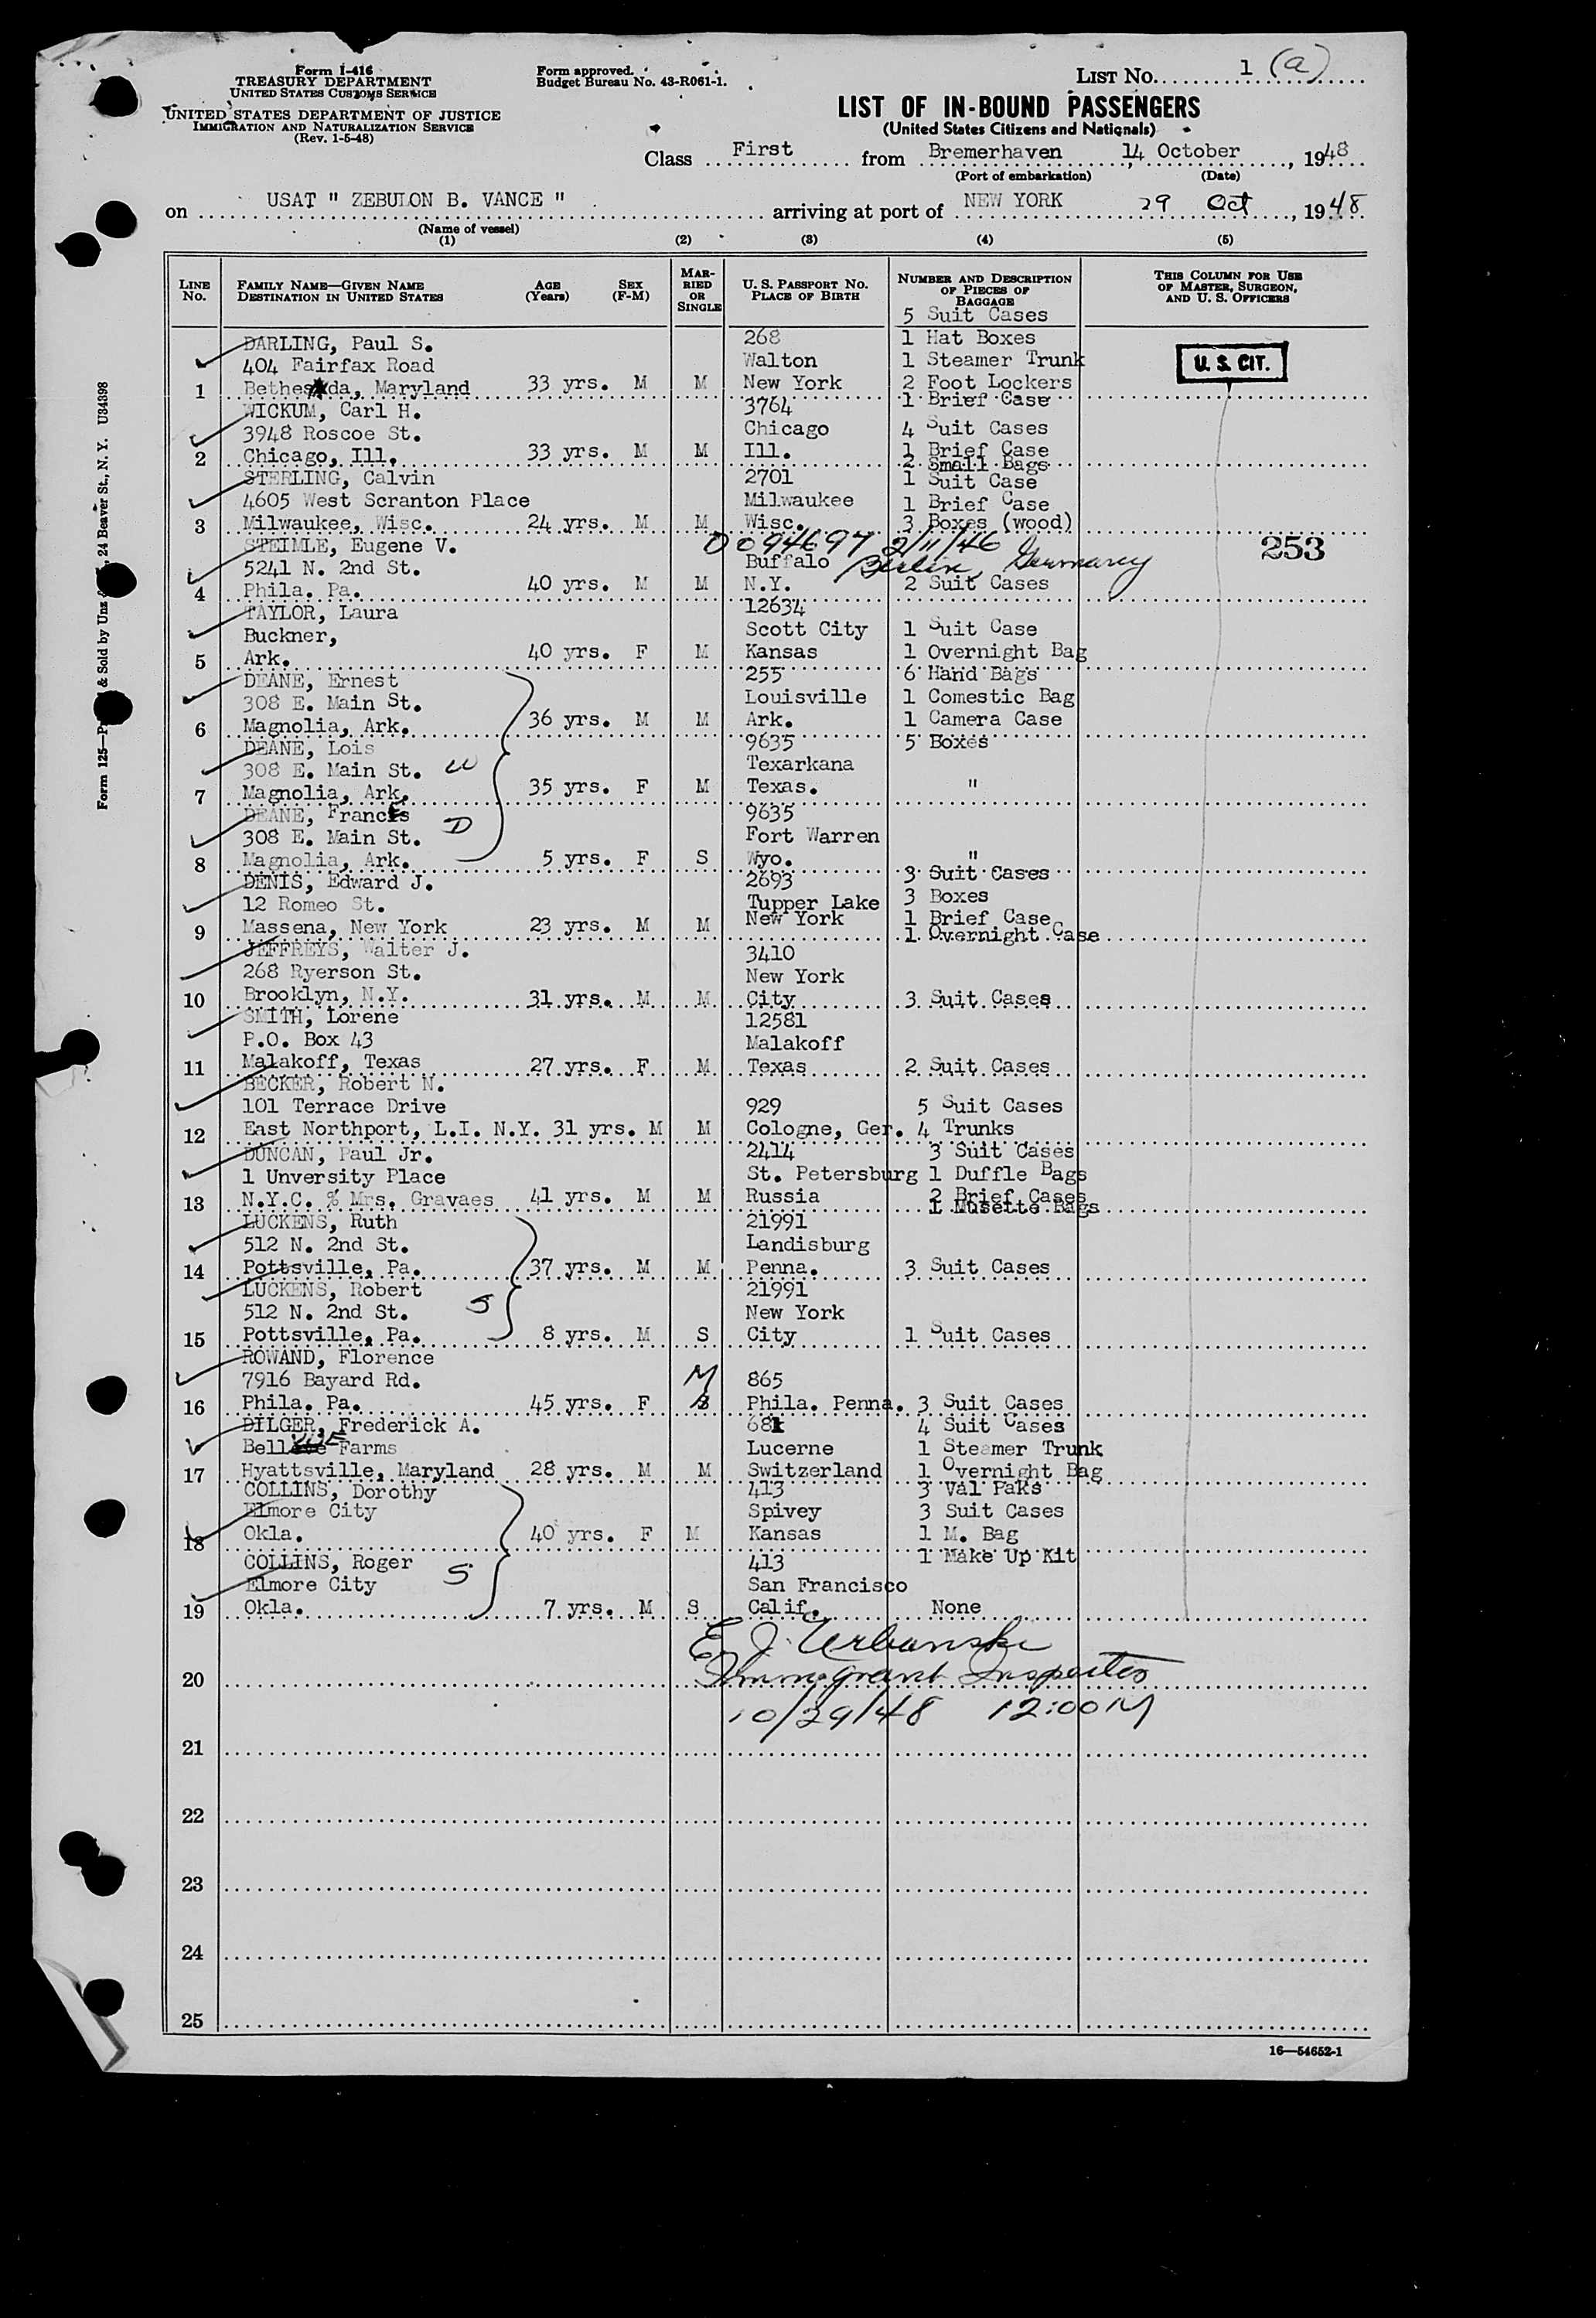 Form I-416
TREASURY DEPARTMENT
UNITED STATES CUSTOMS SERVICE
UNITED STATES DEPARTMENT OF JUSTICE
IMMIGRATION AND NATURALIZATION SERVICE
(Rev. 1-5-48)
Form approved.
Budget Bureau No. 43-R061-1.
LIST NO. 1 (a)
LIST OF IN-BOUND PASSENGERS
(United States Citizens and Nationals)
Class First from Bremerhaven 14 October, 1948
(Port of embarkation) (Date)
on USAT " ZEBULON B. VANCE " arriving at port of NEW YORK 29 Oct, 1948
(Name of vessel)
(1) (2) (3) (4) (5)
LINE NO. FAMILY NAME—GIVEN NAME DESTINATION IN UNITED STATES AGE (Years) SEX (F-M) MARRIED OR SINGLE U. S. PASSPORT NO. PLACE OF BIRTH NUMBER AND DESCRIPTION OF PIECES OF BAGGAGE THIS COLUMN FOR USE OF MASTER, SURGEON, AND U. S. OFFICERS
5 Suit Cases
DARLING, Paul S. 268 1 Hat Boxes
404 Fairfax Road Walton 1 Steamer Trunk U. S. CIT.
1 Bethesda, Maryland 33 yrs. M M New York 2 Foot Lockers
WICKUM, Carl H. 3764 1 Brief Case
3948 Roscoe St. Chicago 4 Suit Cases
2 Chicago, Ill. 33 yrs. M M Ill. 1 Brief Case
2 Small Bags
STERLING, Calvin 2701 1 Suit Case
4605 West Scranton Place Milwaukee 1 Brief Case
3 Milwaukee, Wisc. 24 yrs. M M Wisc. 3 Boxes (wood)
STEIMLE, Eugene V. 0094697 2/11/46 253
5241 N. 2nd St. Buffalo Berlin, Germany
4 Phila. Pa. 40 yrs. M M N.Y. 2 Suit Cases
TAYLOR, Laura 12634
Buckner, Scott City 1 Suit Case
5 Ark. 40 yrs. F M Kansas 1 Overnight Bag
DEANE, Ernest 255 6 Hand Bags
308 E. Main St. Louisville 1 Comestic Bag
6 Magnolia, Ark. 36 yrs. M M Ark. 1 Camera Case
DEANE, Lois 9635 5 Boxes
308 E. Main St. W Texarkana
7 Magnolia, Ark. 35 yrs. F M Texas. "
DEANE, Frances 9635
308 E. Main St. D Fort Warren
8 Magnolia, Ark. 5 yrs. F S Wyo. "
DENIS, Edward J. 2693 3 Suit Cases
12 Romeo St. Tupper Lake 3 Boxes
9 Massena, New York 23 yrs. M M New York 1 Brief Case
1 Overnight Case
JEFFREYS, Walter J. 3410
268 Ryerson St. New York
10 Brooklyn, N.Y. 31 yrs. M M City 3 Suit Cases
SMITH, Lorene 12581
P.O. Box 43 Malakoff
11 Malakoff, Texas 27 yrs. F M Texas 2 Suit Cases
BECKER, Robert N.
101 Terrace Drive 929 5 Suit Cases
12 East Northport, L.I. N.Y. 31 yrs. M M Cologne, Ger. 4 Trunks
DUNCAN, Paul Jr. 2414 3 Suit Cases
1 Unversity Place St. Petersburg 1 Duffle Bags
13 N.Y.C. % Mrs. Gravaes 41 yrs. M M Russia 2 Brief Cases
1 Musette Bags
LUCKENS, Ruth 21991
512 N. 2nd St. Landisburg
14 Pottsville, Pa. 37 yrs. M M Penna. 3 Suit Cases
LUCKENS, Robert 21991
512 N. 2nd St. S New York
15 Pottsville, Pa. 8 yrs. M S City 1 Suit Cases
ROWAND, Florence
7916 Bayard Rd. M 865
16 Phila. Pa. 45 yrs. F S Phila. Penna. 3 Suit Cases
DILGER, Frederick A. 681 4 Suit Cases
Bellevue Farms Lucerne 1 Steamer Trunk
17 Hyattsville, Maryland 28 yrs. M M Switzerland 1 Overnight Bag
COLLINS, Dorothy 413 3 Val Paks
Elmore City Spivey 3 Suit Cases
18 Okla. 40 yrs. F M Kansas 1 M. Bag
COLLINS, Roger 413 1 Make Up Kit
Elmore City S San Francisco
19 Okla. 7 yrs. M S Calif. None
E. J. Urbanski
20 Immigrant Inspector
10/29/48 12:00 M
21
22
23
24
25
16—54652-1
Form 125— & Sold by Unz 24 Beaver St., N. Y. U34398